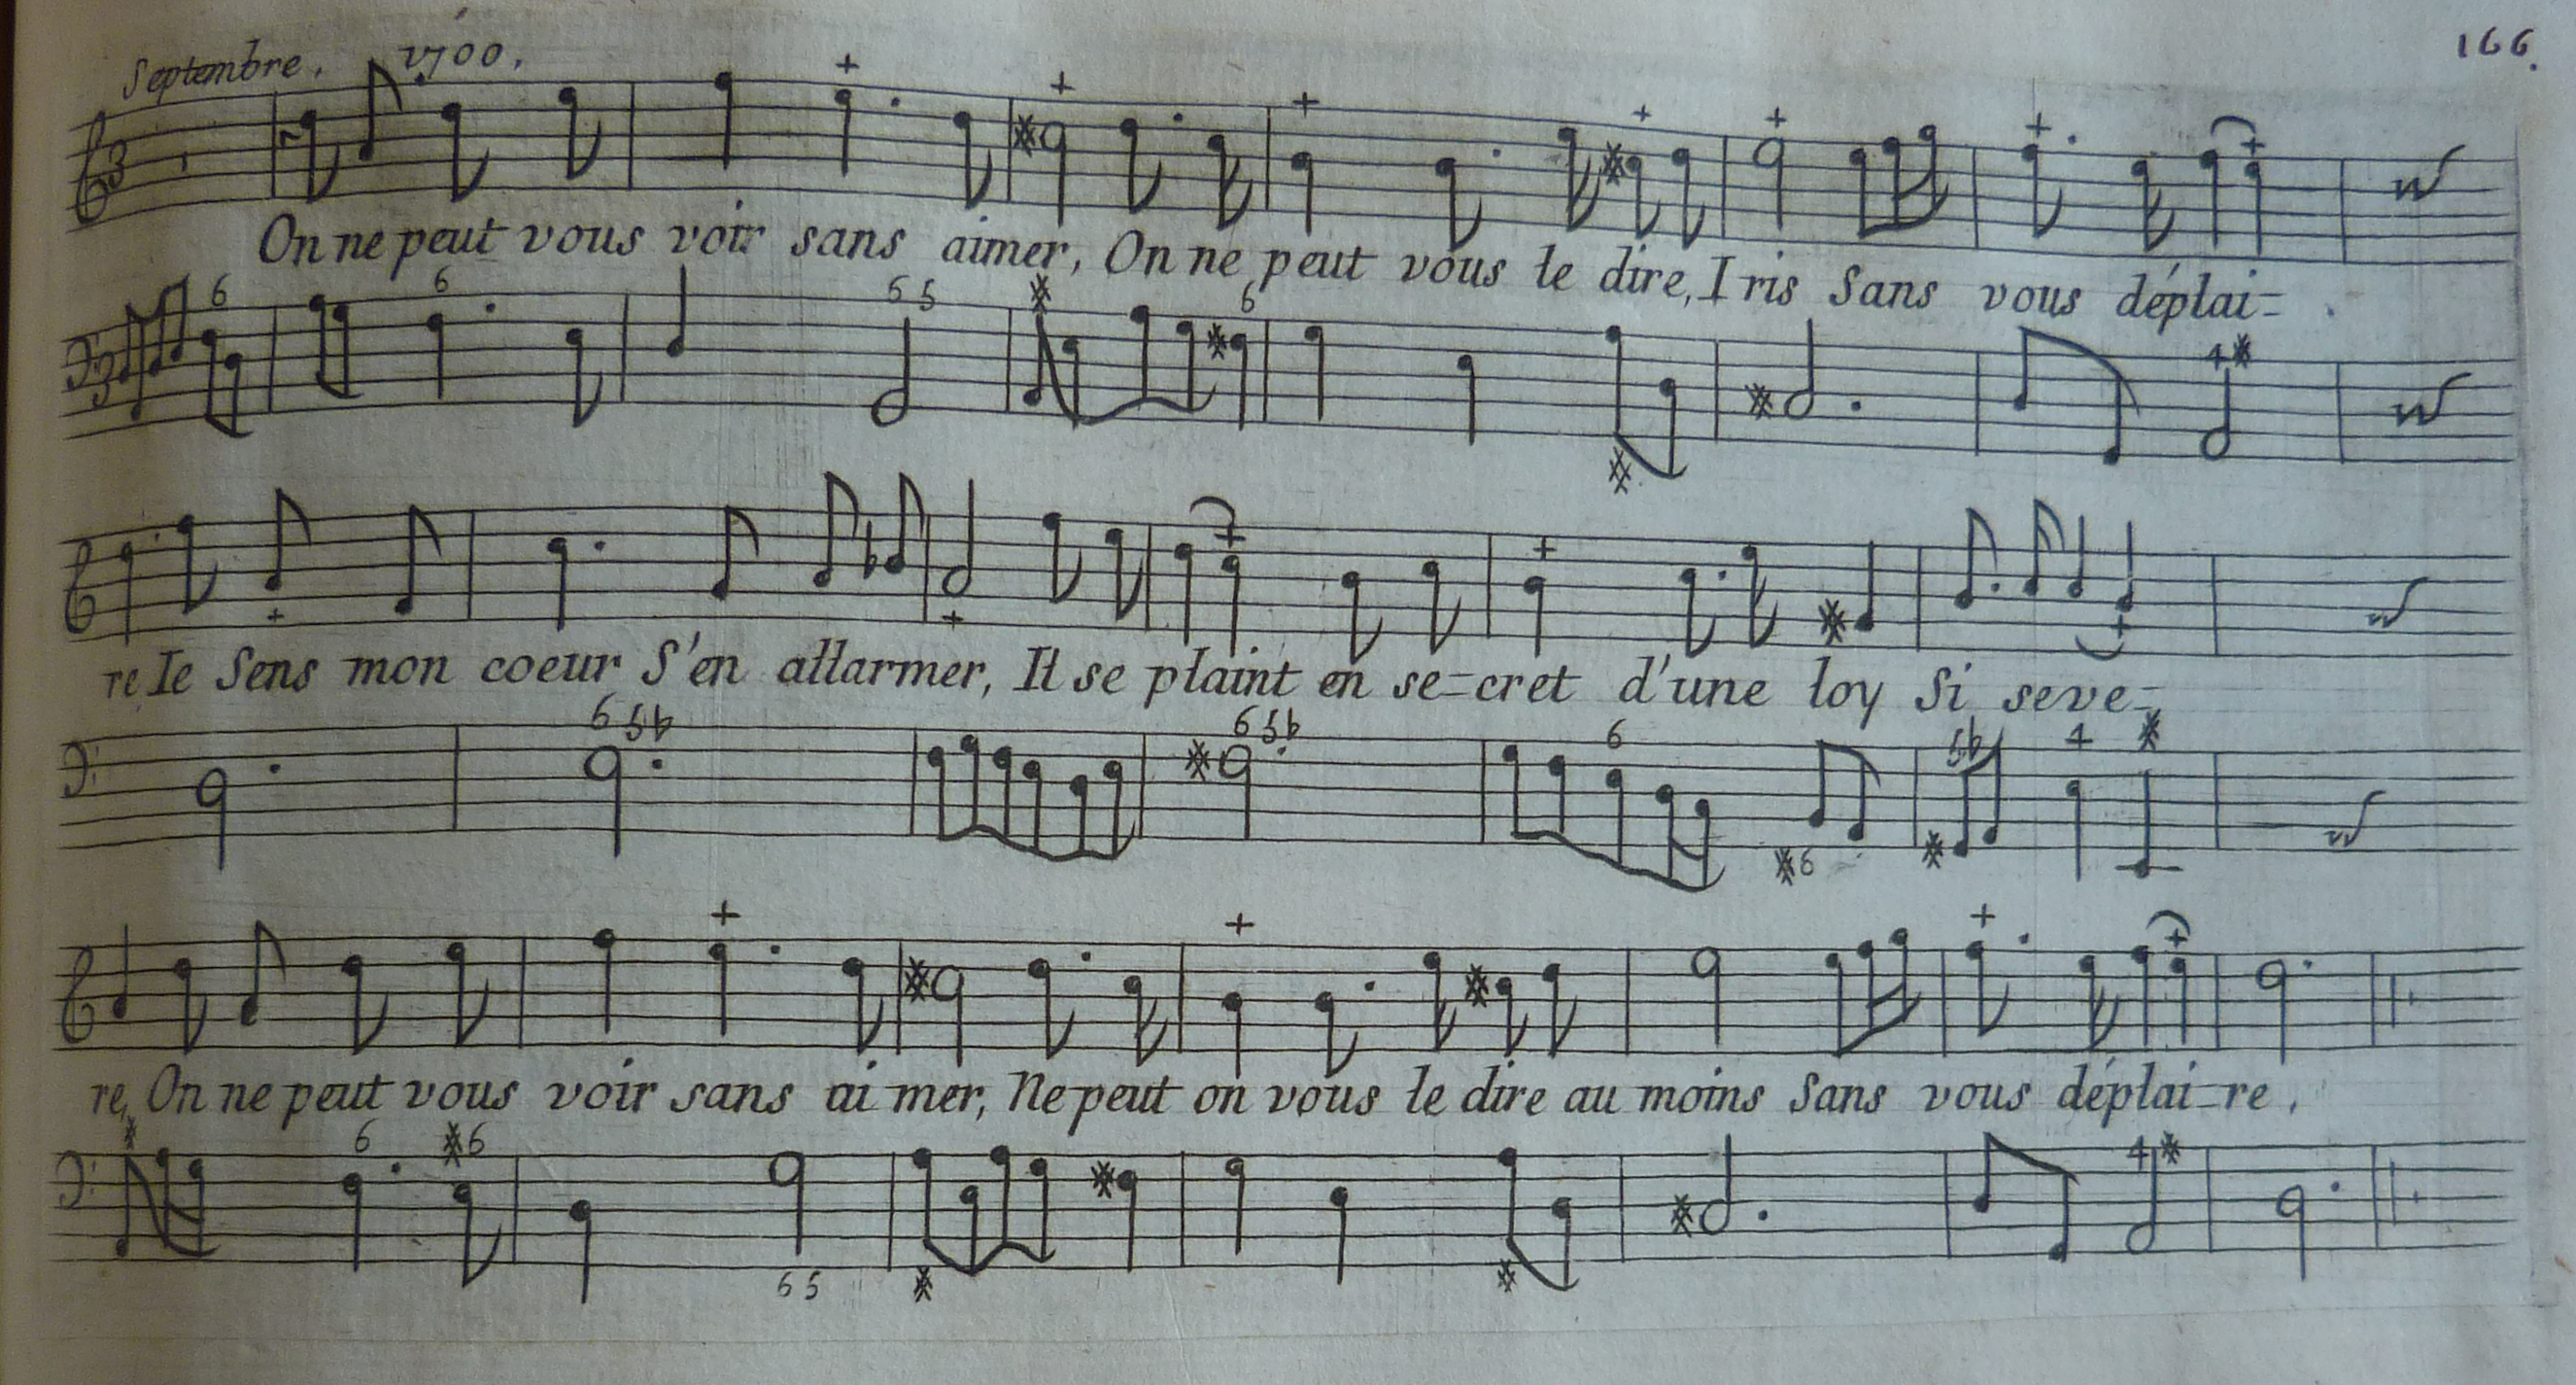 Septembre, 1700,
166.
On ne peut vous voir sans aimer, On ne peut vous le dire, Iris Sans vous déplai=
6 6 6 5 6
4
re Ie Sens mon coeur S'en allarmer, Il se plaint en se=cret d'une loy Si seve=
6 5b 6 5b 6 6 5b 4
re, On ne peut vous voir sans ai mer, Ne peut on vous le dire au moins Sans vous déplai=re.
6 6 6 5 4